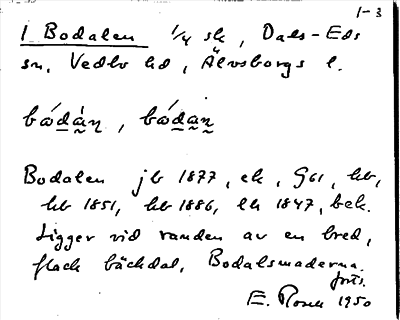 1-3
1 Bodalen 1/4 sk, Dals-Eds
sn, Vedbo hd, Älvsborgs l.
bɷ́dàṇ, bɷ́dạṇ
Bodalen jb 1877, ek, G61, hb,
hb 1851, hb 1886, lh 1847, bek.
Ligger vid randen av en bred,
flack bäckdal, Bodalsmaderna.
forts.
E. Rosen 1950